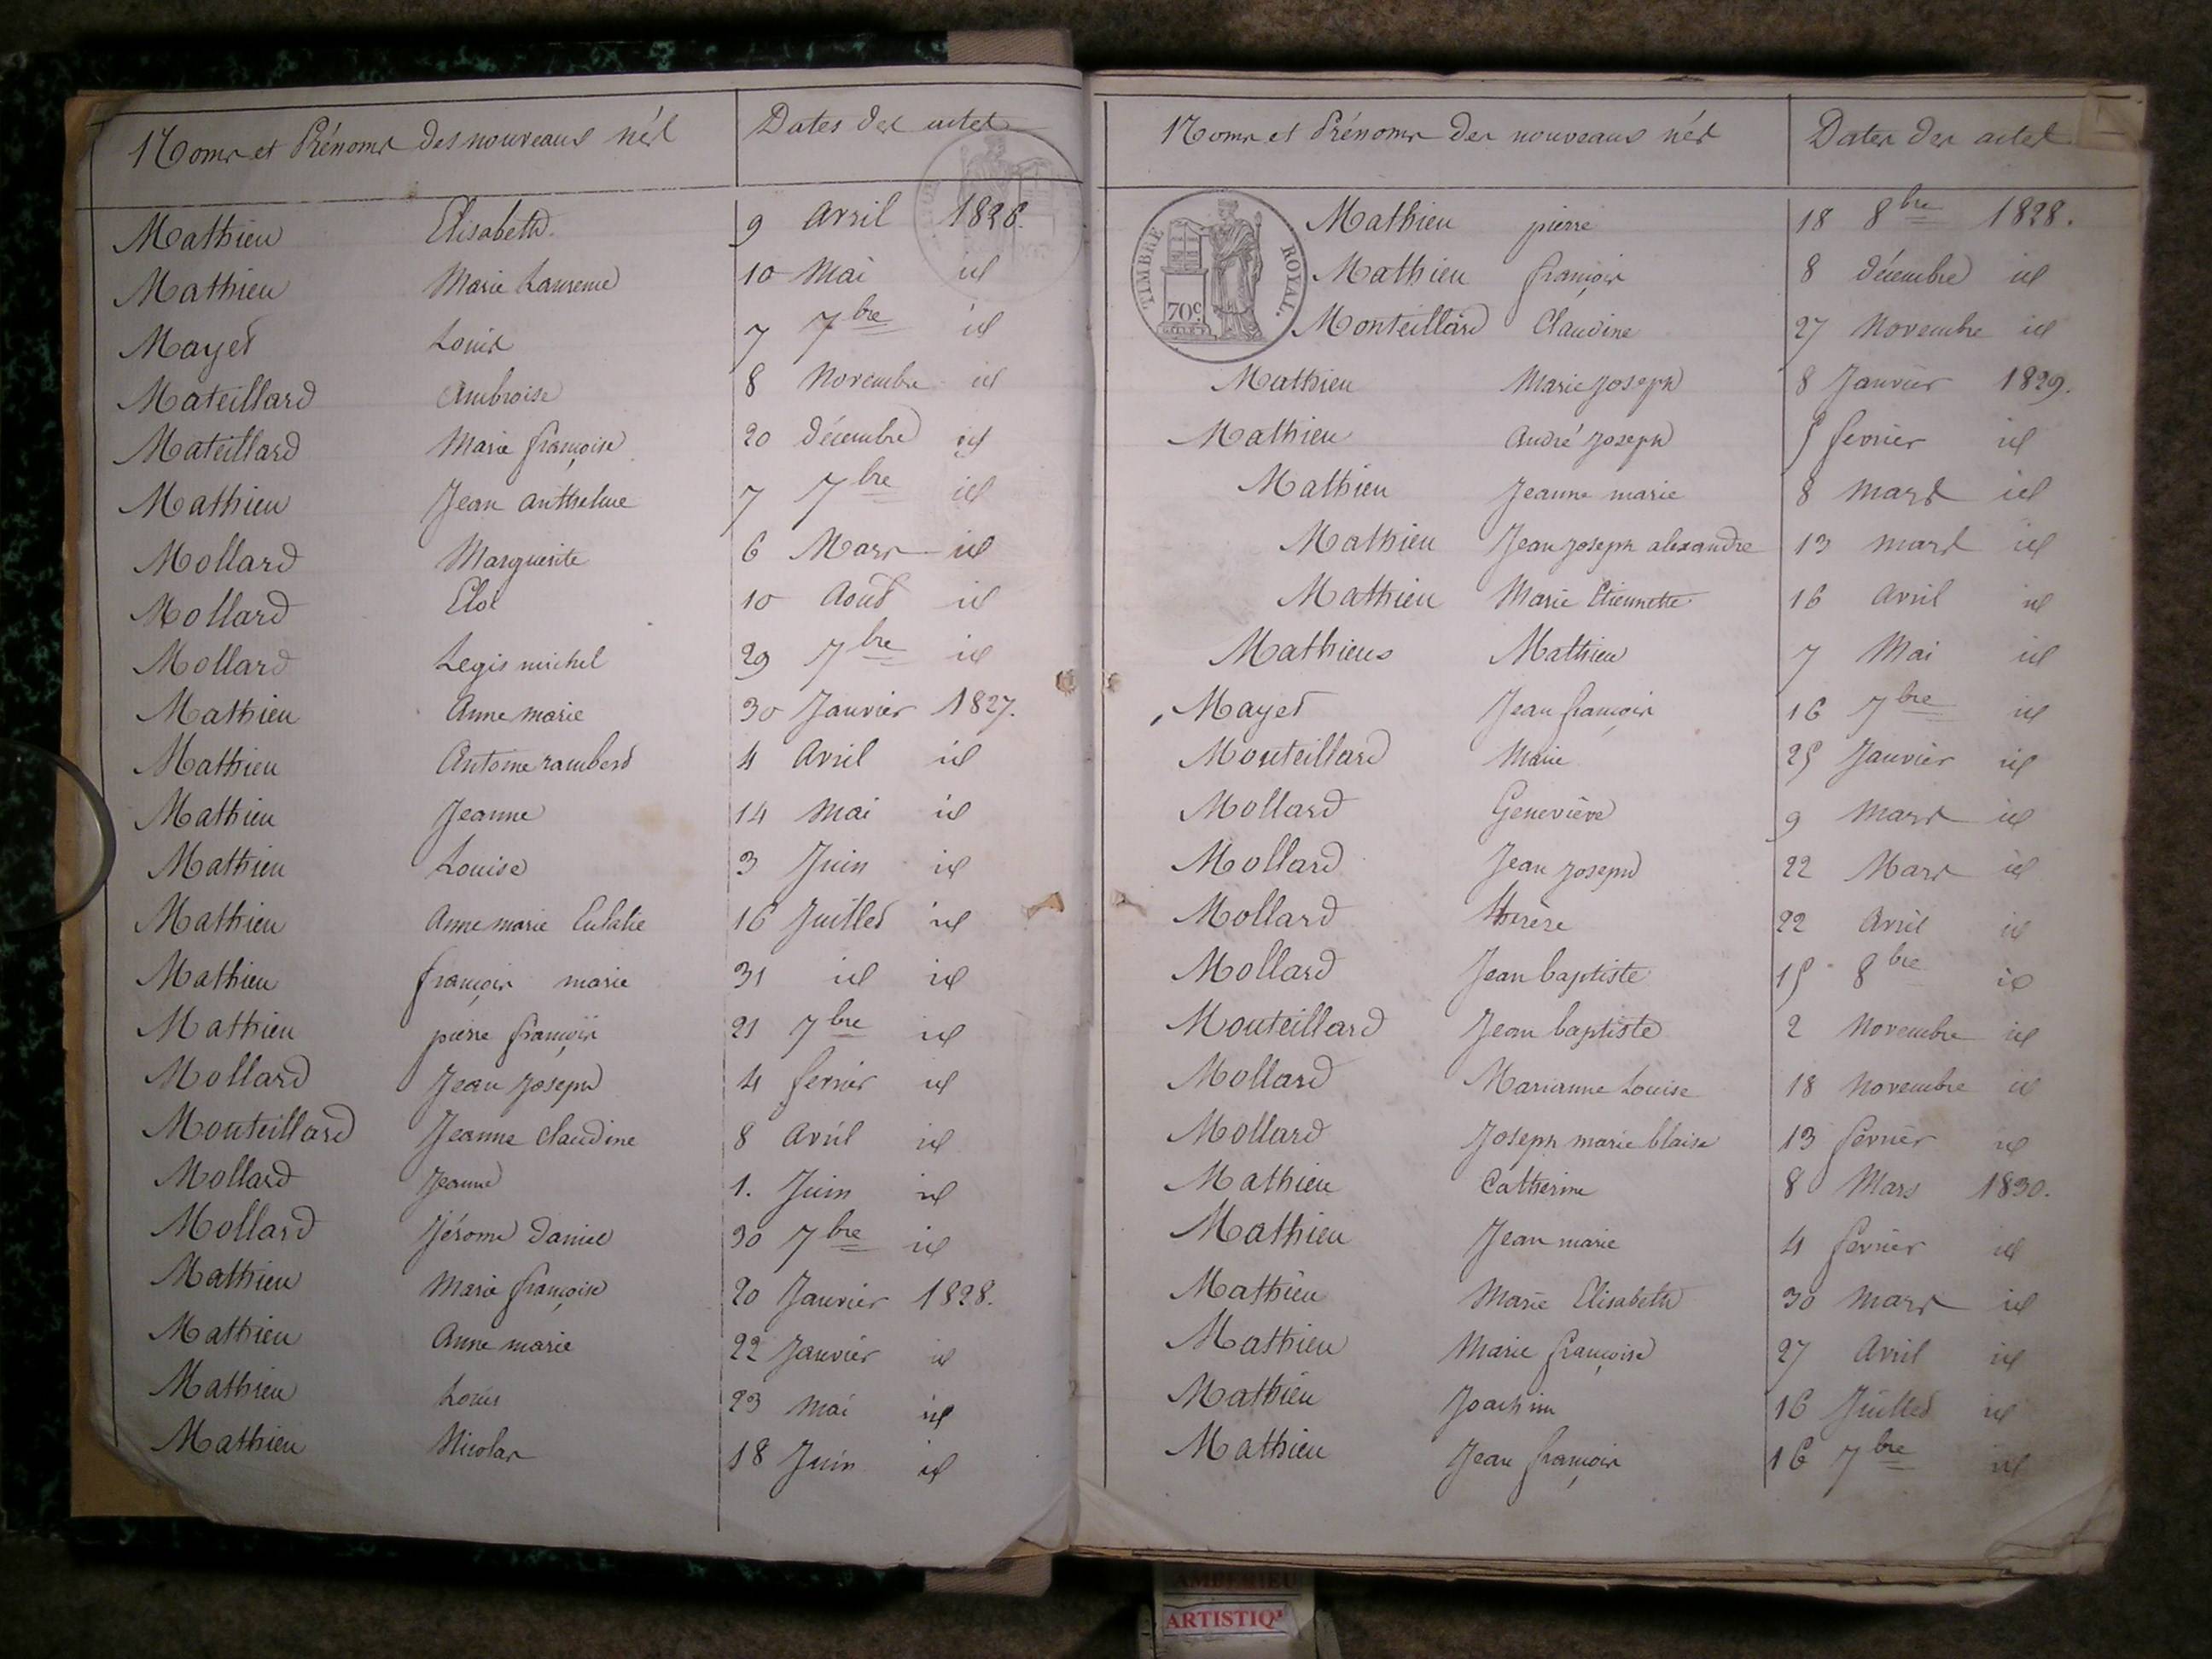 Noms et Prénoms des nouveaux nés Dates des actes
Mathieu Elisabeth 9 Avril 1826.
Mathieu Marie Laurence 10 Mai id
Mayet Louis 7 7bre id
Mateillard Ambroise 8 Novembre id
Mateillard Marie françoise 20 décembre id
Mathieu Jean Anthelme 7 7bre id
Mollard Marguerite 6 Mars id
Mollard Eloi 10 Août id
Mollard Regis michel 29 7bre id
Mathieu Anne marie 30 Janvier 1827.
Mathieu Antoine rambert 4 Avril id
Mathieu Jeanne 14 Mai id
Mathieu Louise 3 Juin id
Mathieu Anne marie Eulalie 16 Juillet id
Mathieu françois marie 31 id id
Mathieu pierre françois 21 7bre id
Mollard Jean Joseph 4 fevrier id
Monteillard Jeanne Claudine 8 Avril id
Mollard Jeanne 1. Juin id
Mollard Jérome daniel 30 7bre id
Mathieu Marie françoise 20 Janvier 1828.
Mathieu Anne marie 22 Janvier id
Mathieu Louis 23 Mai id
Mathieu Nicolas 18 Juin id
Noms et Prénoms des nouveaux nés Dates des actes
TIMBRE ROYAL.
70c.
Mathieu pierre 18 8bre 1828.
Mathieu françois 8 décembre id
Monteillard Claudine 27 Novembre id
Mathieu Marie Joseph 8 Janvier 1829.
Mathieu André Joseph 5 fevrier id
Mathieu Jeanne marie 8 Mars id
Mathieu Jean Joseph alexandre 13 Mars id
Mathieu Marie Etiennette 16 Avril id
Mathieus Mathieu 7 Mai id
Mayet Jean françois 16 7bre id
Monteillard Marie 25 Janvier id
Mollard Geneviève 9 Mars id
Mollard Jean Joseph 22 Mars id
Mollard thérèse 22 Avril id
Mollard Jean baptiste 15 8bre id
Monteillard Jean baptiste 2 Novembre id
Mollard Marianne Louise 18 Novembre id
Mollard Joseph marie blaise 13 fevrier id
Mathieu Catherine 8 Mars 1830.
Mathieu Jean marie 4 fevrier id
Mathieu Marie Elisabeth 30 Mars id
Mathieu Marie françoise 27 Avril id
Mathieu Joachim 16 Juillet id
Mathieu Jean françois 16 7bre id
AMBERIEU
ARTISTIQ